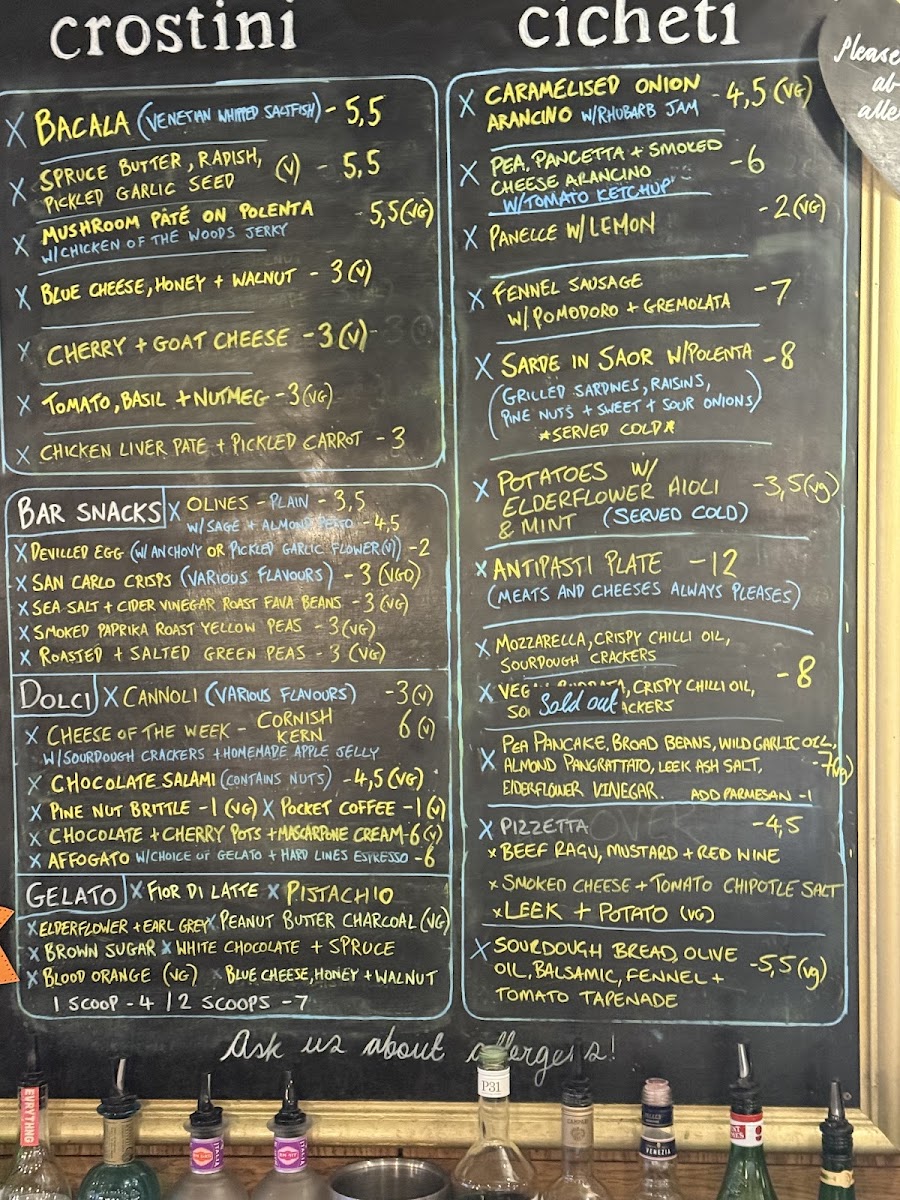 crostini
X BACALA (VENETIAN WHIPPED SALTFISH) - 5,5
X SPRUCE BUTTER, RADISH, (V) - 5,5
PICKLED GARLIC SEED
X MUSHROOM PÂTÉ ON POLENTA - 5,5 (VG)
W/CHICKEN OF THE WOODS JERKY
X BLUE CHEESE, HONEY + WALNUT - 3 (V)
X CHERRY + GOAT CHEESE - 3 (V)
X TOMATO, BASIL + NUTMEG - 3 (VG)
X CHICKEN LIVER PATE + PICKLED CARROT - 3
BAR SNACKS X OLIVES - PLAIN - 3,5
W/ SAGE + ALMOND PESTO - 4,5
X DEVILLED EGG (W/ ANCHOVY OR PICKLED GARLIC FLOWER (V)) - 2
X SAN CARLO CRISPS (VARIOUS FLAVOURS) - 3 (VGO)
X SEA SALT + CIDER VINEGAR ROAST FAVA BEANS - 3 (VG)
X SMOKED PAPRIKA ROAST YELLOW PEAS - 3 (VG)
X ROASTED + SALTED GREEN PEAS - 3 (VG)
DOLCI X CANNOLI (VARIOUS FLAVOURS) - 3 (V)
X CHEESE OF THE WEEK - CORNISH KERN 6 (V)
W/ SOURDOUGH CRACKERS + HOMEMADE APPLE JELLY
X CHOCOLATE SALAMI (CONTAINS NUTS) - 4,5 (VG)
X PINE NUT BRITTLE - 1 (VG) X POCKET COFFEE - 1 (V)
X CHOCOLATE + CHERRY POTS + MASCARPONE CREAM - 6 (V)
X AFFOGATO W/CHOICE OF GELATO + HARD LINES ESPRESSO - 6
GELATO X FIOR DI LATTE X PISTACHIO
X ELDERFLOWER + EARL GREY X PEANUT BUTTER CHARCOAL (VG)
X BROWN SUGAR X WHITE CHOCOLATE + SPRUCE
X BLOOD ORANGE (VG) X BLUE CHEESE, HONEY + WALNUT
1 SCOOP - 4 / 2 SCOOPS - 7
cicheti
X CARAMELISED ONION - 4,5 (VG)
ARANCINO W/RHUBARB JAM
X PEA, PANCETTA + SMOKED - 6
CHEESE ARANCINO
W/TOMATO KETCHUP
X PANELLE W/ LEMON - 2 (VG)
X FENNEL SAUSAGE - 7
W/ POMODORO + GREMOLATA
X SARDE IN SAOR W/POLENTA - 8
(GRILLED SARDINES, RAISINS,
PINE NUTS + SWEET + SOUR ONIONS)
*SERVED COLD*
X POTATOES W/
ELDERFLOWER AIOLI - 3,5 (vg)
& MINT (SERVED COLD)
X ANTIPASTI PLATE - 12
(MEATS AND CHEESES ALWAYS PLEASES)
X MOZZARELLA, CRISPY CHILLI OIL,
SOURDOUGH CRACKERS
- 8
X VEG , CRISPY CHILLI OIL,
Sold out
X PEA PANCAKE, BROAD BEANS, WILD GARLIC OIL,
ALMOND PANGRATTATO, LEEK ASH SALT, - 7 (vg)
ELDERFLOWER VINEGAR. ADD PARMESAN - 1
X PIZZETTA - 4,5
X BEEF RAGU, MUSTARD + RED WINE
X SMOKED CHEESE + TOMATO CHIPOTLE SALT
X LEEK + POTATO (VG)
X SOURDOUGH BREAD, OLIVE
OIL, BALSAMIC, FENNEL + - 5,5 (vg)
TOMATO TAPENADE
Ask us about allergens!
Please
ab
alle
P31
VENEZIA